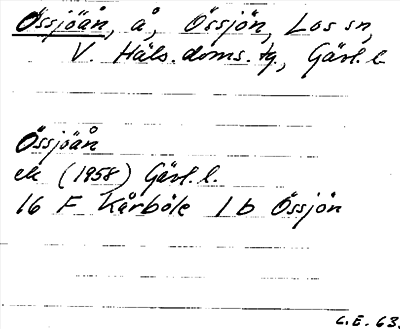 Össjöån, å, Össjön, Los sn,
V. Häls. doms. tg, Gävl. l.
Össjöån
ek (1958) Gävl. l.
16 F Kårböle 1 b Össjön
C.E. 63.